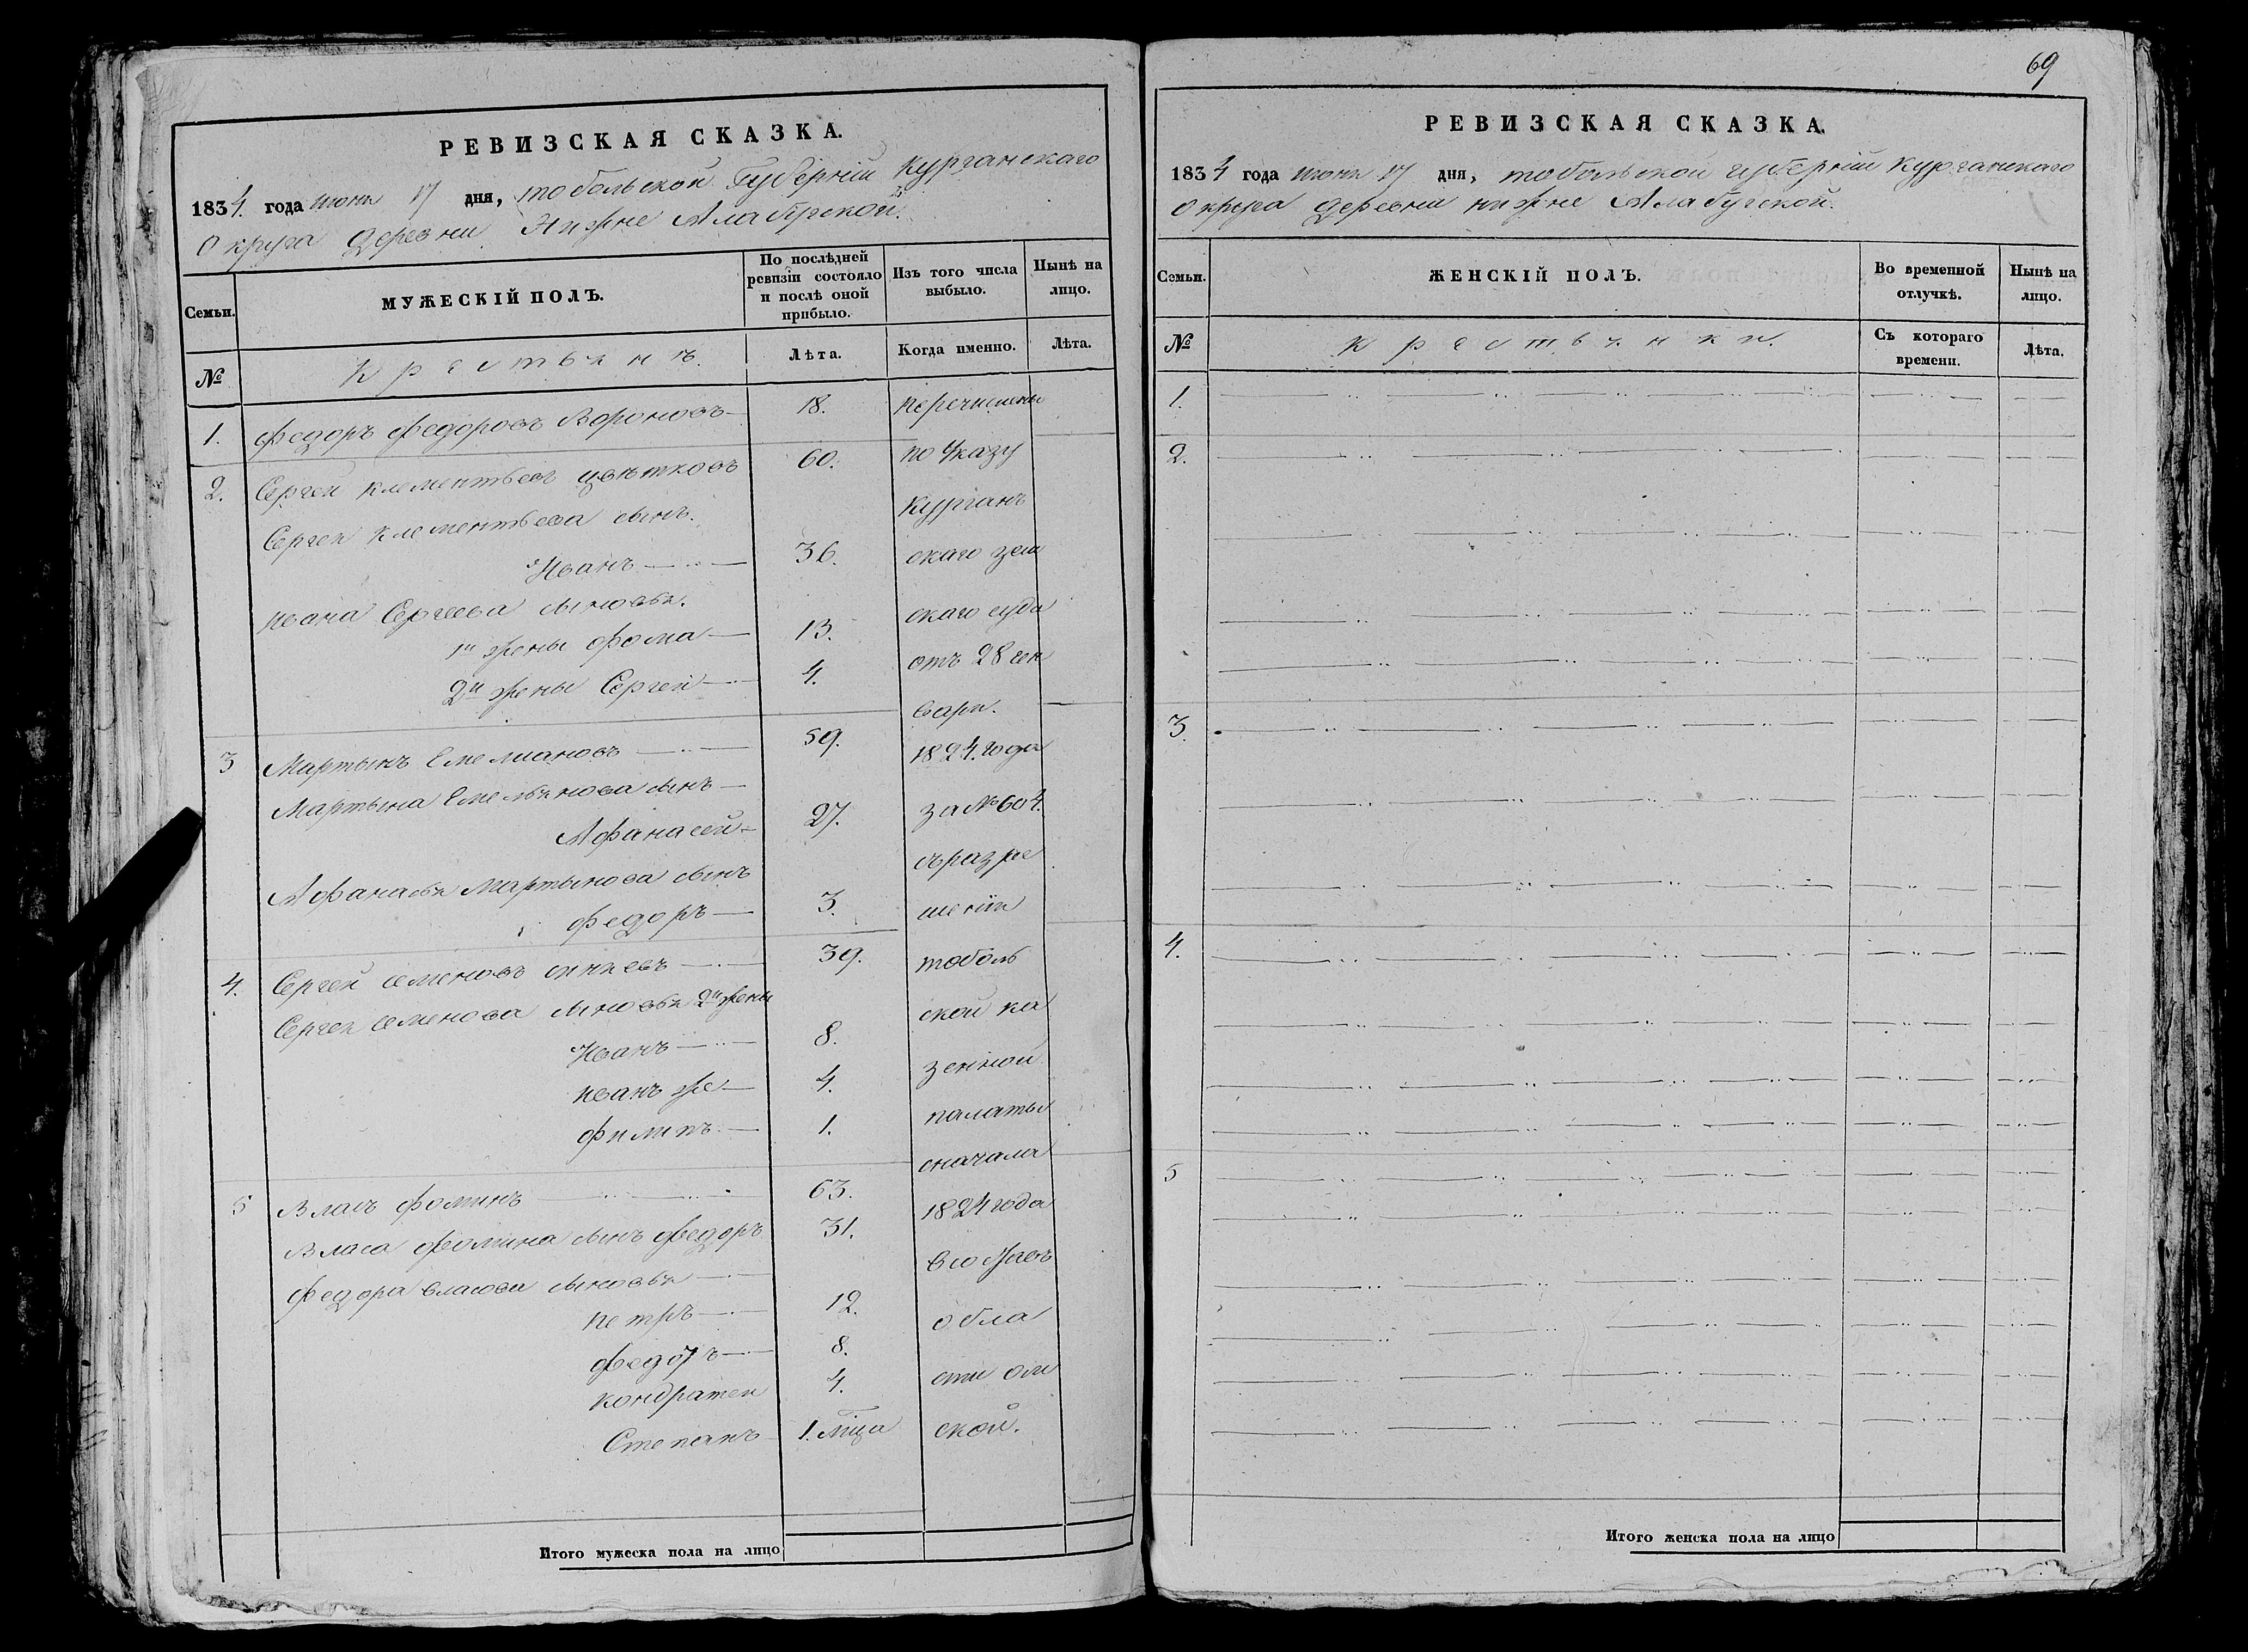 РЕВИЗСКАЯ СКАЗКА.
1834. года июня 17 дня, тобольской Губернiи Курганскаго
Округа деревни Нижне Алабугской.
Семьи.
МУЖЕСКІЙ ПОЛЪ.
По послѣдней ревизіи состояло и послѣ оной прибыло.
Изъ того числа выбыло.
Нынѣ на лицо.
№
Крестьянъ.
Лѣта.
Когда именно.
Лѣта.
1. Федоръ Федоровъ Вороновъ 18. перечислены
2. Сергей Клементьевъ Цветковъ 60. по указу
Сергея Клементьева сынъ. Курганъ
Иванъ 36. скаго зем
Ивана Сергеева сыновья. скаго суда
1й жены Фома 13.
2й жены Сергей 4. отъ 28 ген
варя.
3 Мартынъ Емелиановъ 59. 1824. года
Мартына Емельянова сынъ
Афанасей 27. за № 604.
съ разре
Афанасья Мартынова сынъ
Федоръ 3. шенiя
4. Сергей Семеновъ 39. тоболь
Сергея Семенова сыновья 2й жены ской ка
Иванъ 8.
Иванъ же 4. зенной
Филипъ 1. палаты
сначала
5 Власъ Фоминъ 63. 1824 года
Власа Фомина сынъ Федоръ 31.
Федора Власова сыновья
Петръ 12. обла
Федотъ 8.
Кондратей 4. сти ом
Степанъ 1. мца ской.
Итого мужеска пола на лицо
69
РЕВИЗСКАЯ СКАЗКА.
1834 года июня 17 дня, тобольской губернiи Курганскаго
Округа деревни нижне Алабугской.
Семьи.
ЖЕНСКІЙ ПОЛЪ.
Во временной отлучкѣ.
Нынѣ на лицо.
№
Крестьянки.
Съ котораго времени.
Лѣта.
1.
2.
3.
4.
5
Итого женска пола на лицо